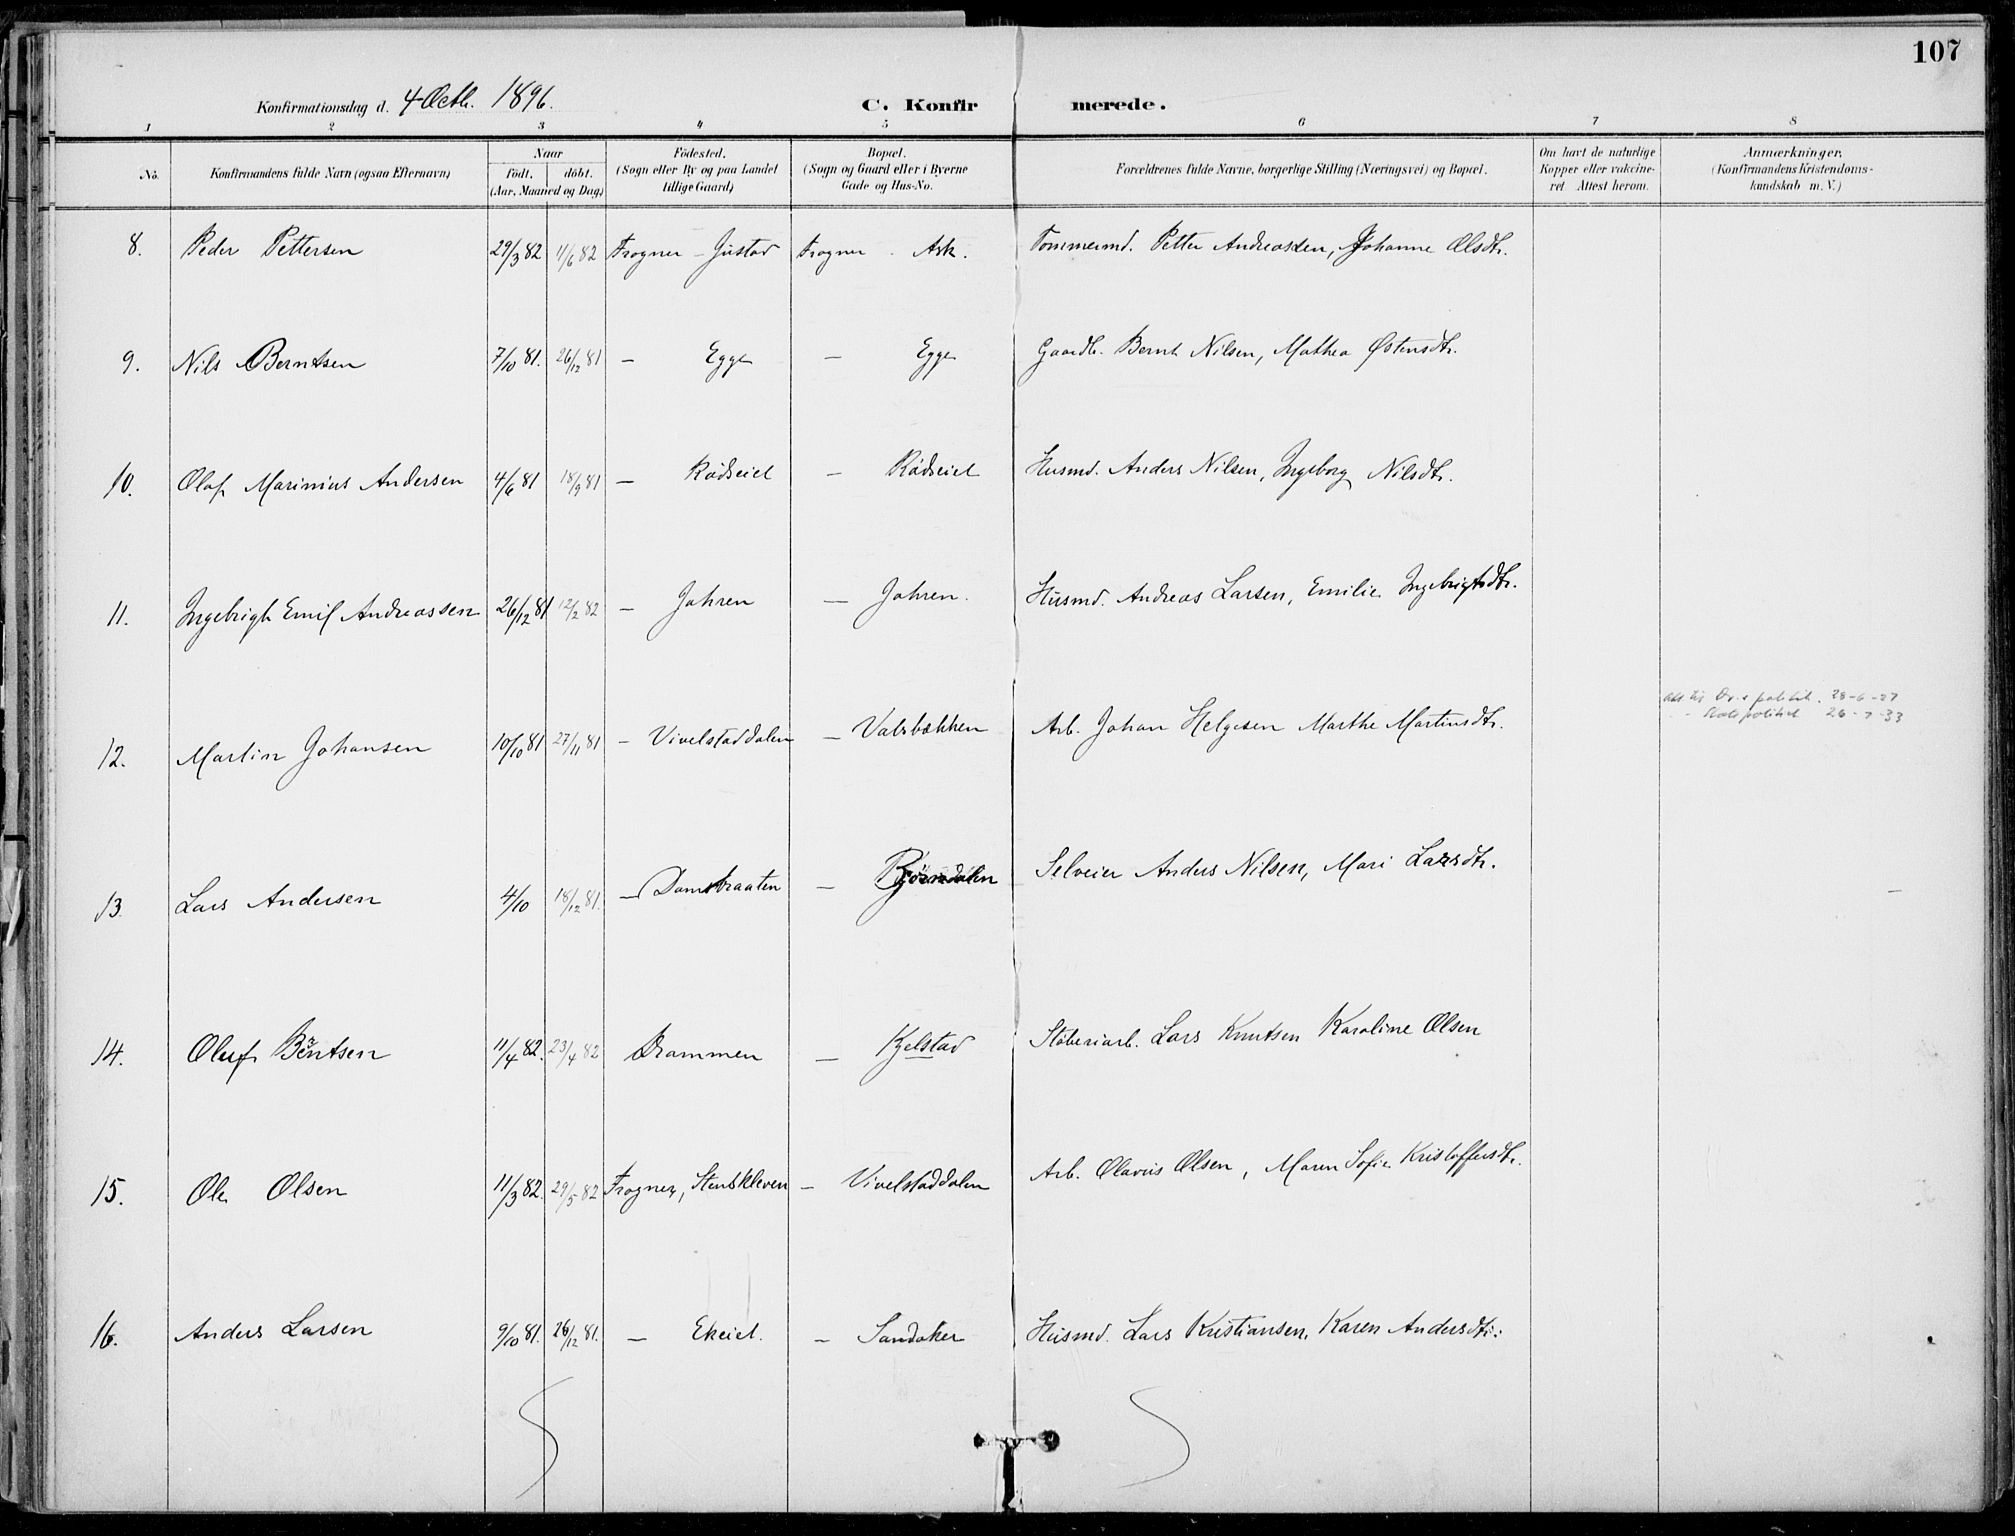 107
Konfirmationsdag d. 4 Octb. 1896.
C. Konfirmerede.
1 2 3 4 5 6 7 8
No. Konfirmandens fulde Navn (ogsaa Efternavn) Naar födt. döbt. (Aar, Maaned og Dag) Födested. (Sogn eller By og paa Landet tillige Gaard) Bopæl. (Sogn og Gaard eller i Byerne Gade og Hus-No. Forældrenes fulde Navne, borgerlige Stilling (Næringsvei) og Bopæl. Om havt de naturlige Kopper eller vaccineret. Attest herom. Anmærkninger, (Konfirmandens Kristendomskundskab m. V.)
8. Peder Pettersen 29/3 82 11/6 82 Frogner - Gustad Frogner - Ask. Tømmermd. Petter Andreassen, Johanne Olsdtr.
9. Nils Berntsen 7/10 81. 26/12 81 — Egge — Egge Gaardb. Bernt Nilsen, Mathea Østensdtr.
10. Olaf Marinius Andersen 4/6 81 18/9 81 — Rødseiet — Rødseiet Husmd. Anders Nilsen, Ingeborg Nilsdtr.
11. Ingebrigt Emil Andreassen 26/12 81 12/2 82 — Jahren — Jahren. Husmd. Andreas Larsen, Emilie Ingebrigtsdtr.
12. Martin Johansen 10/10 81 27/11 81 — Vivelstaddalen — Valsbækken Arb. Johan Helgesen Marthe Martinsdtr. 28-6-27
politiet 26-7-33
13. Lars Andersen 4/10 18/12 81. — Dambraaten — Bjørndalen Selveier Anders Nilsen, Mari Larsdtr. —
14. Oluf Berntsen 11/4 82. 23/4 82 Drammen — Kjelstad Støberiarb. Lars Knutsen Karoline Olsen
15. Ole Olsen 11/3 82. 29/5 82 Frogner, Stenskleven — Vivelstaddalen Arb. Olavus Olsen, Maren Sofie Kristoffersdtr.
16. Anders Larsen 9/10 81. 26/12 81. — Ekeiet. — Sandaker Husmd. Lars Kristiansen, Karen Andersdtr.